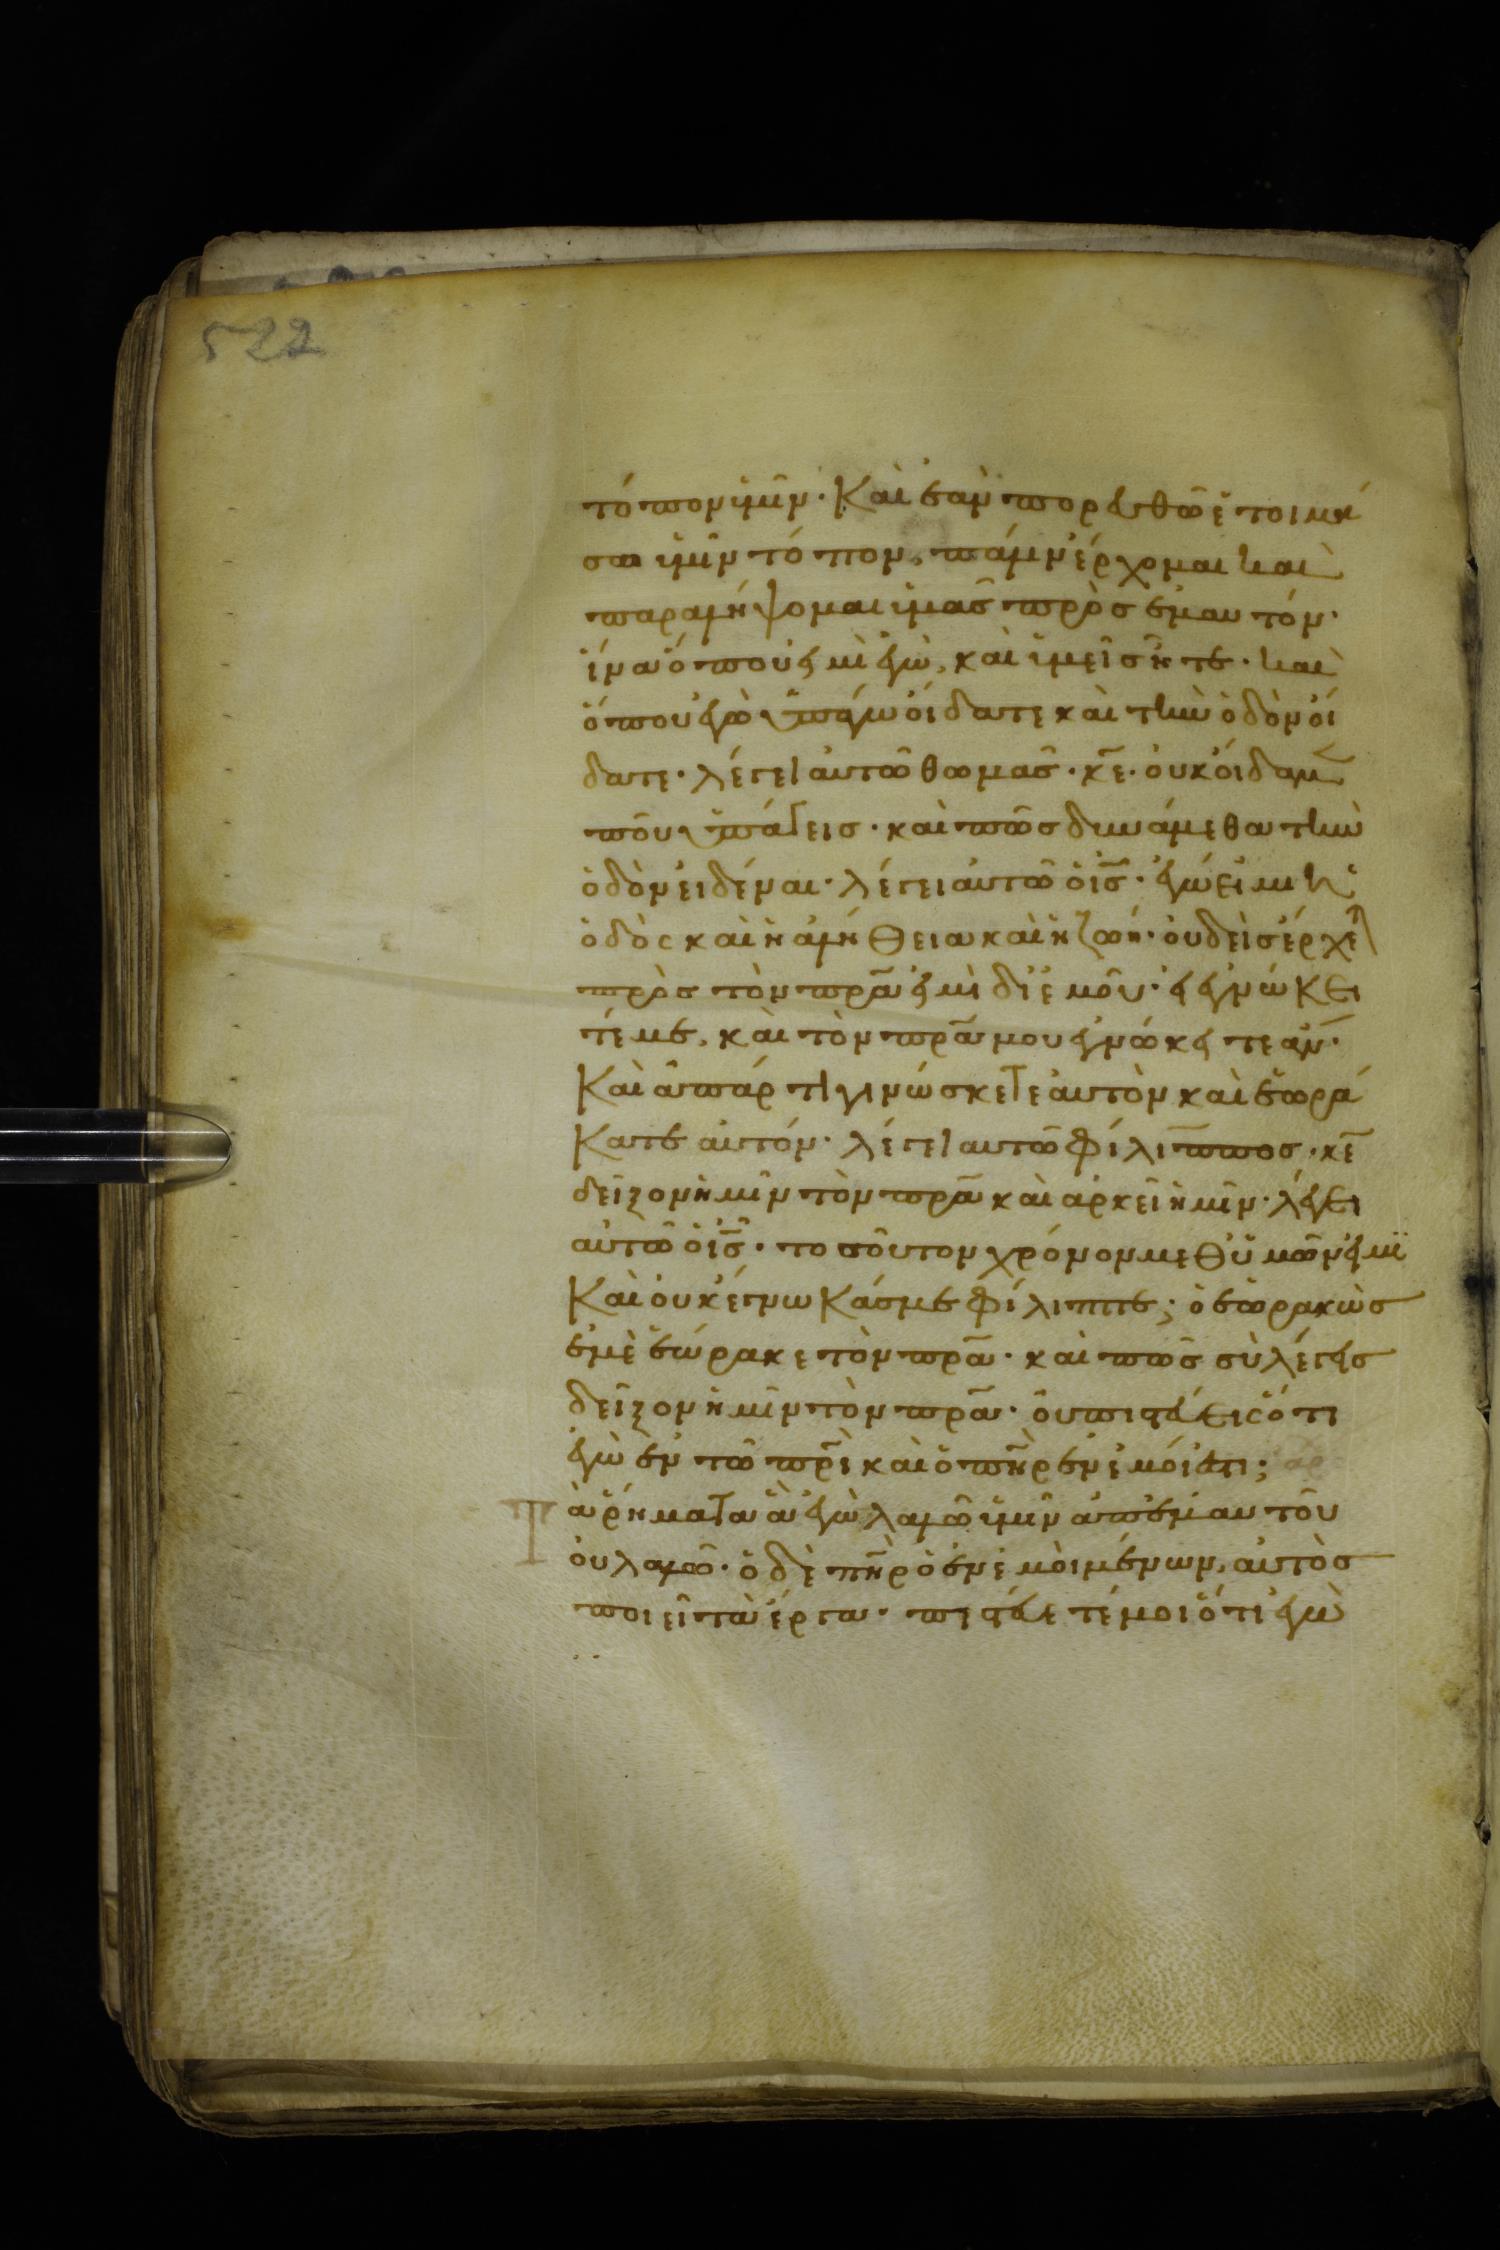 522
τόπον ὑμῖν· Καὶ ἐὰν πορευθῶ ἑτοιμά
σω ὑμῖν τόπον, πάλιν ἔρχομαι καὶ
παραλήψομαι ὑμᾶς πρὸς ἐμαυτόν·
ἵνα ὅπου εἰμὶ ἐγὼ, καὶ ὑμεῖς ἦτε· καὶ
ὅπου ἐγὼ ὑπάγω οἴδατε καὶ τὴν ὁδὸν οἴ
δατε· λέγει αὐτῶ θωμᾶς· κ̅ε̅· οὐκ οἴδαμ̅
ποῦ ὑπάγεις· καὶ πῶς δυνάμεθα τὴν
ὁδὸν εἰδέναι· λέγει αὐτῶ ὁ ι̅ς̅· ἐγώ εἰμι ἡ
ὁδὸς καὶ ἡ ἀλήθεια καὶ ἡ ζωή· οὐδεὶς ἔρχε̅
πρὸς τὸν π̅ρ̅α̅ εἰ μὴ δι' ἐμοῦ· εἰ ἐγνώκει
τέ με, καὶ τὸν π̅ρ̅α̅ μου ἐγνώκειτε ἄν·
Καὶ ἀπάρτι γινώσκετε αὐτὸν καὶ ἑωρά
Κατε αὐτόν· λέγει αὐτῶ Φίλιππος· κ̅ε̅
δεῖξον ἡμῖν τὸν π̅ρ̅α̅ καὶ ἀρκεῖ ἡμῖν· λέγει
αὐτῶ ὁ ι̅ς̅· τοσοῦτον χρόνον μεθ' ὑμῶν εἰμὶ
Καὶ οὐκ ἔγνωκάς με Φίλιππε; ὁ ἑωρακὼς
ἐμὲ ἑώρακε τὸν π̅ρ̅α̅· καὶ πῶς σὺ λέγεις
δεῖξον ἡμῖν τὸν π̅ρ̅α̅· οὐ πιστεύεις ὅτι
ἐγὼ ἐν τῶ π̅ρ̅ι̅ καὶ ὁ π̅η̅ρ̅ ἐν ἐμοί ἐστι;
Τὰ ῥήματα ἃ ἐγὼ λαλῶ ὑμῖν ἀπ' ἐμαυτοῦ
οὐ λαλῶ· ὁ δὲ π̅η̅ρ̅ ὁ ἐν ἐμοὶ μένων, αὐτὸς
ποιεῖ τὰ ἔργα· πιστεύετέ μοι ὅτι ἐγὼ